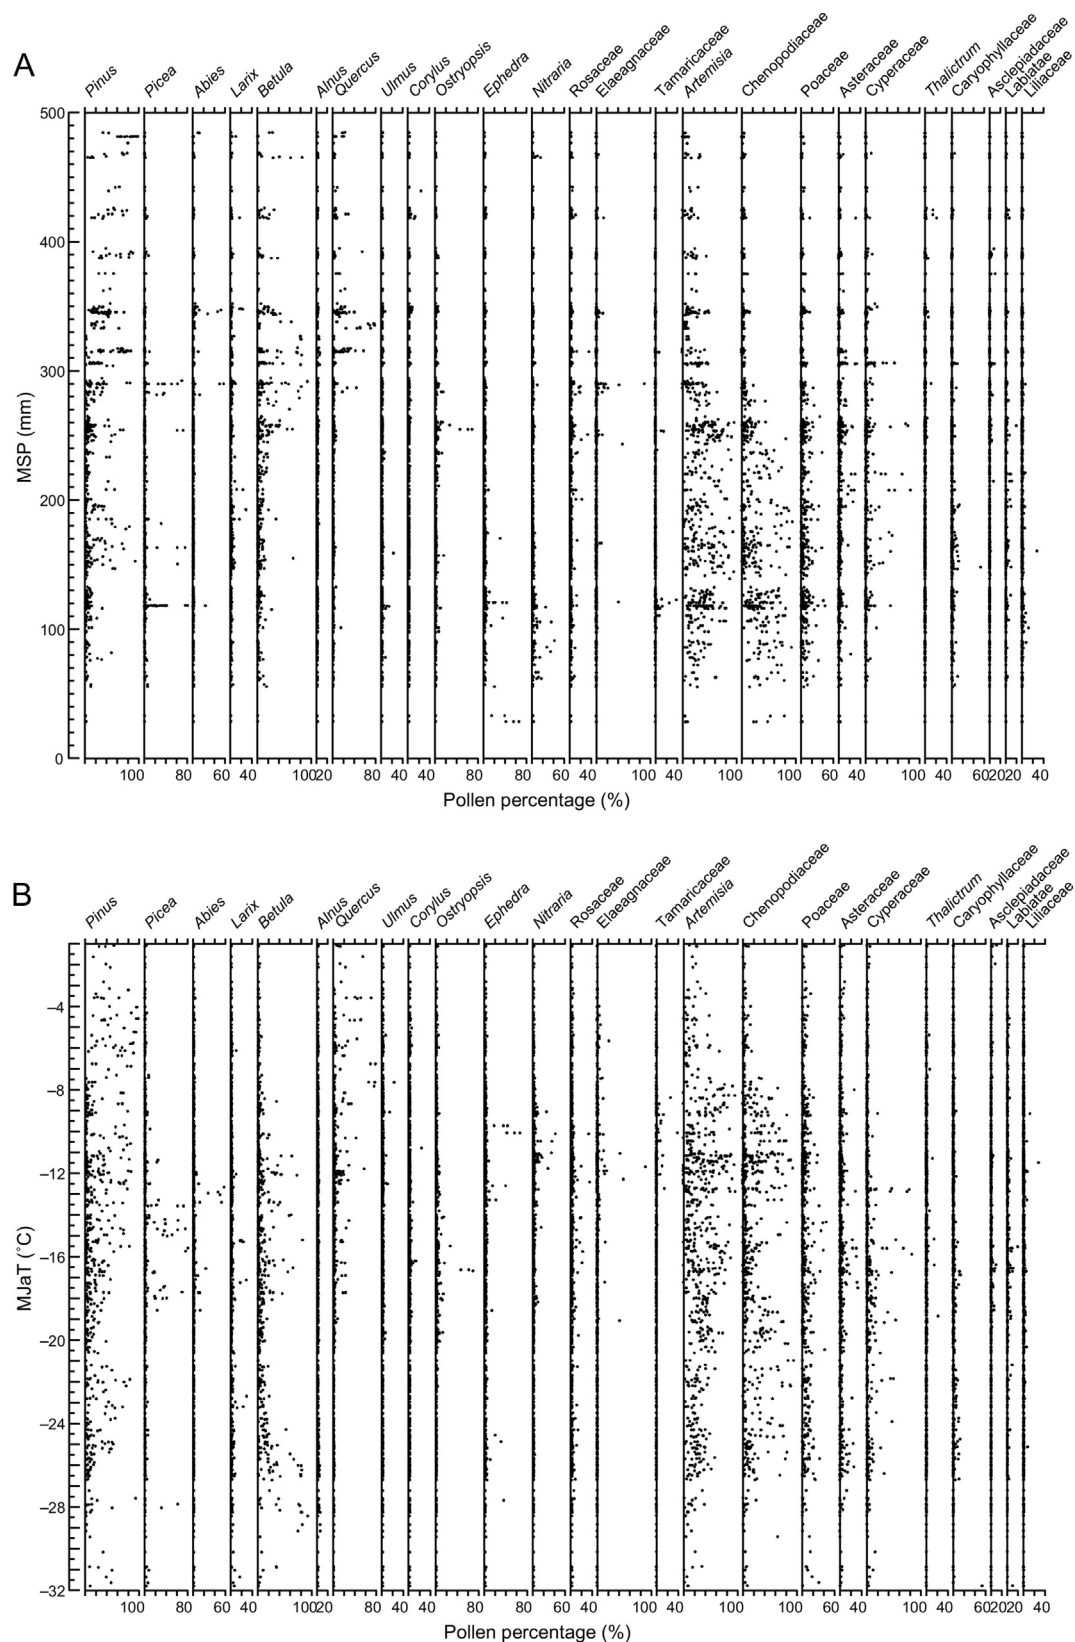 A
Pinus Picea Abies Larix Betula Alnus Quercus Ulmus Corylus Ostryopsis Ephedra Nitraria Rosaceae Elaeagnaceae Tamaricaceae Artemisia Chenopodiaceae Poaceae Asteraceae Cyperaceae Thalictrum Caryophyllaceae Asclepiadaceae Labiatae Liliaceae
500
400
300
200
100
0
MSP (mm)
100 80 60 40 100 20 80 40 40 80 80 60 40 100 40 100 100 60 40 100 40 60 20 20 40
Pollen percentage (%)
B
Pinus Picea Abies Larix Betula Alnus Quercus Ulmus Corylus Ostryopsis Ephedra Nitraria Rosaceae Elaeagnaceae Tamaricaceae Artemisia Chenopodiaceae Poaceae Asteraceae Cyperaceae Thalictrum Caryophyllaceae Asclepiadaceae Labiatae Liliaceae
–4
–8
–12
–16
–20
–24
–28
–32
MJaT (˚C)
100 80 60 40 100 20 80 40 40 80 80 60 40 100 40 100 100 60 40 100 40 60 20 20 40
Pollen percentage (%)